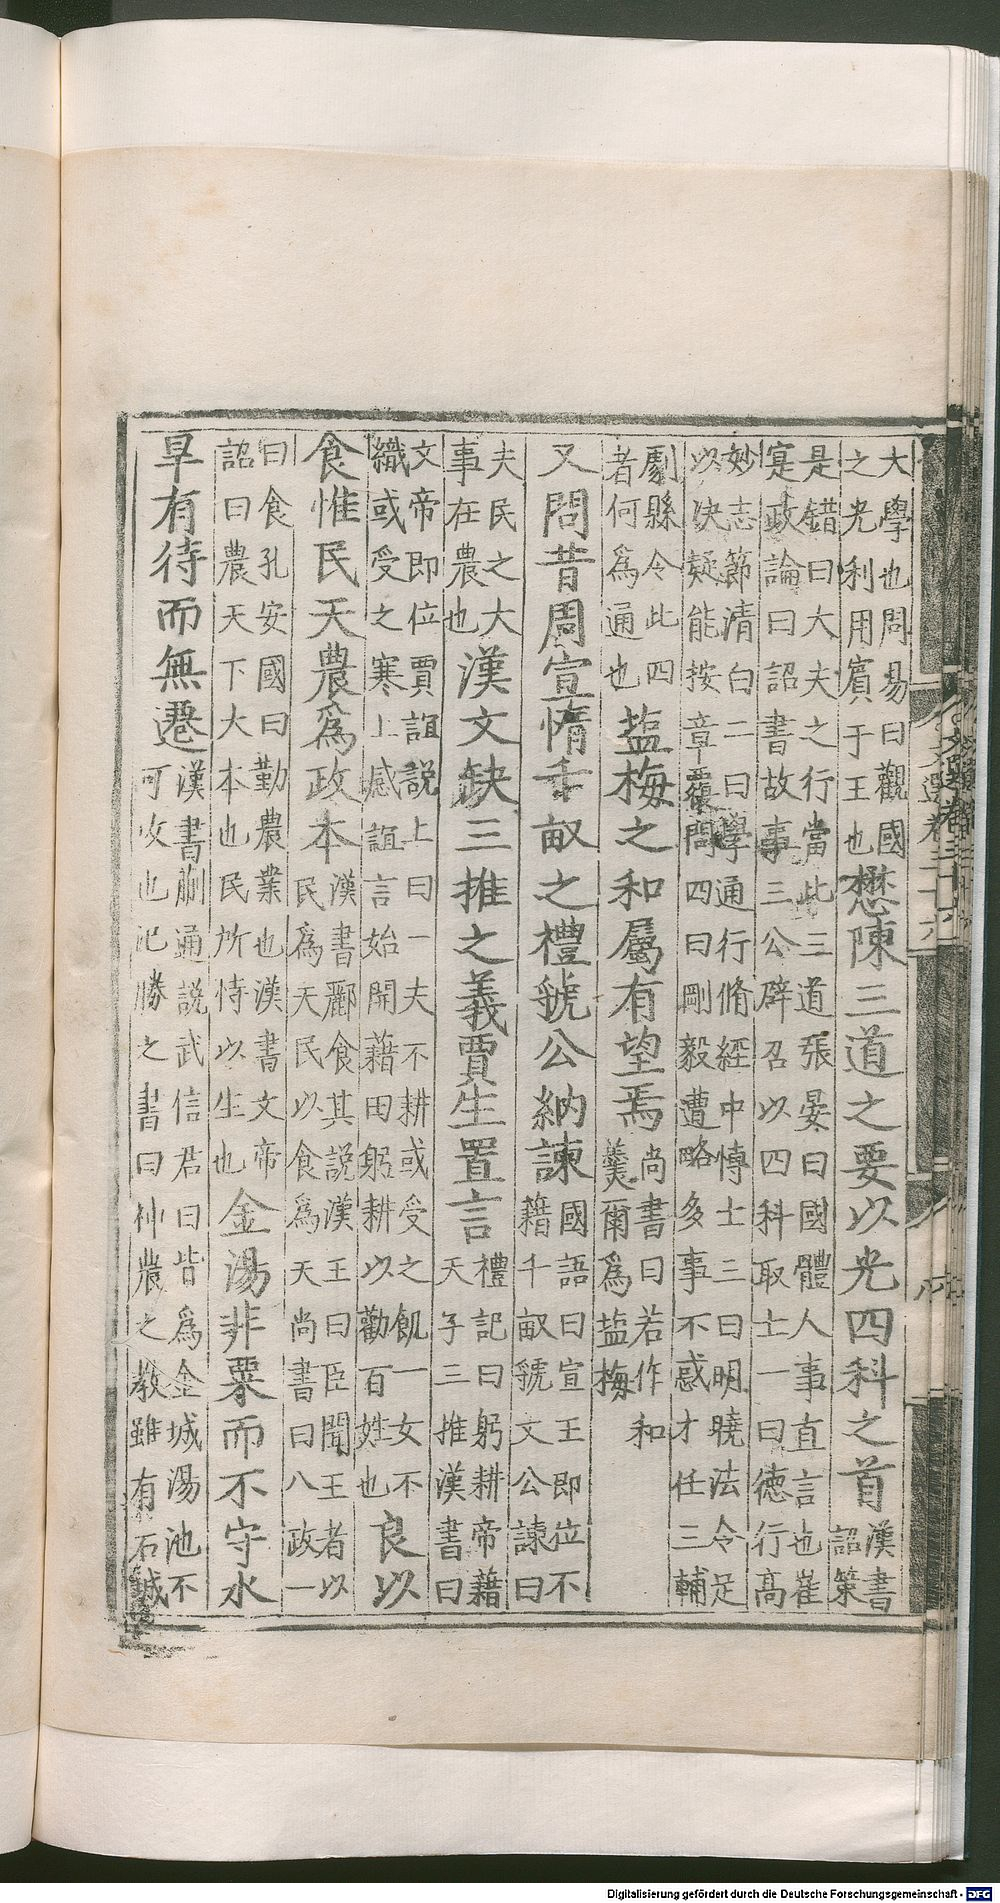 大學也問易曰觀國之光利用賓于王也懋陳三道之要以光四科之首漢書詔策
是錯曰大夫之行當此三道張晏曰國體人事直言也崔
寔政論曰詔書故事三公辟召以四科取士一曰德行高
妙志節清白二曰學通行脩經中博士三曰明曉法令足
以決疑能按章覆問四曰剛毅遭略多事不惑才任三輔
劇縣令此四者何為通也鹽梅之和屬有望焉尚書曰若作和羹爾為鹽梅
又問昔周宣惰千畝之禮虢公納諫國語曰宣王即位不籍千畝虢文公諫曰
夫民之大事在農也漢文缺三推之義賈生置言禮記曰躬耕帝籍天子三推漢書曰
文帝即位賈誼說上曰一夫不耕或受之飢一女不織或受之寒上感誼言始開籍田躬耕以勸百姓也良以
食惟民天農為政本漢書酈食其說漢王曰臣聞王者以民為天民以食為天尚書曰八政一
曰食孔安國曰勤農業也漢書文帝詔曰農天下大本也民所恃以生也金湯非粟而不守水
旱有待而無遷漢書蒯通說武信君曰皆為金城湯池不可攻也氾勝之書曰神農之教雖有石城
文選卷三十六
Digitalisierung gefördert durch die Deutsche Forschungsgemeinschaft - DFG